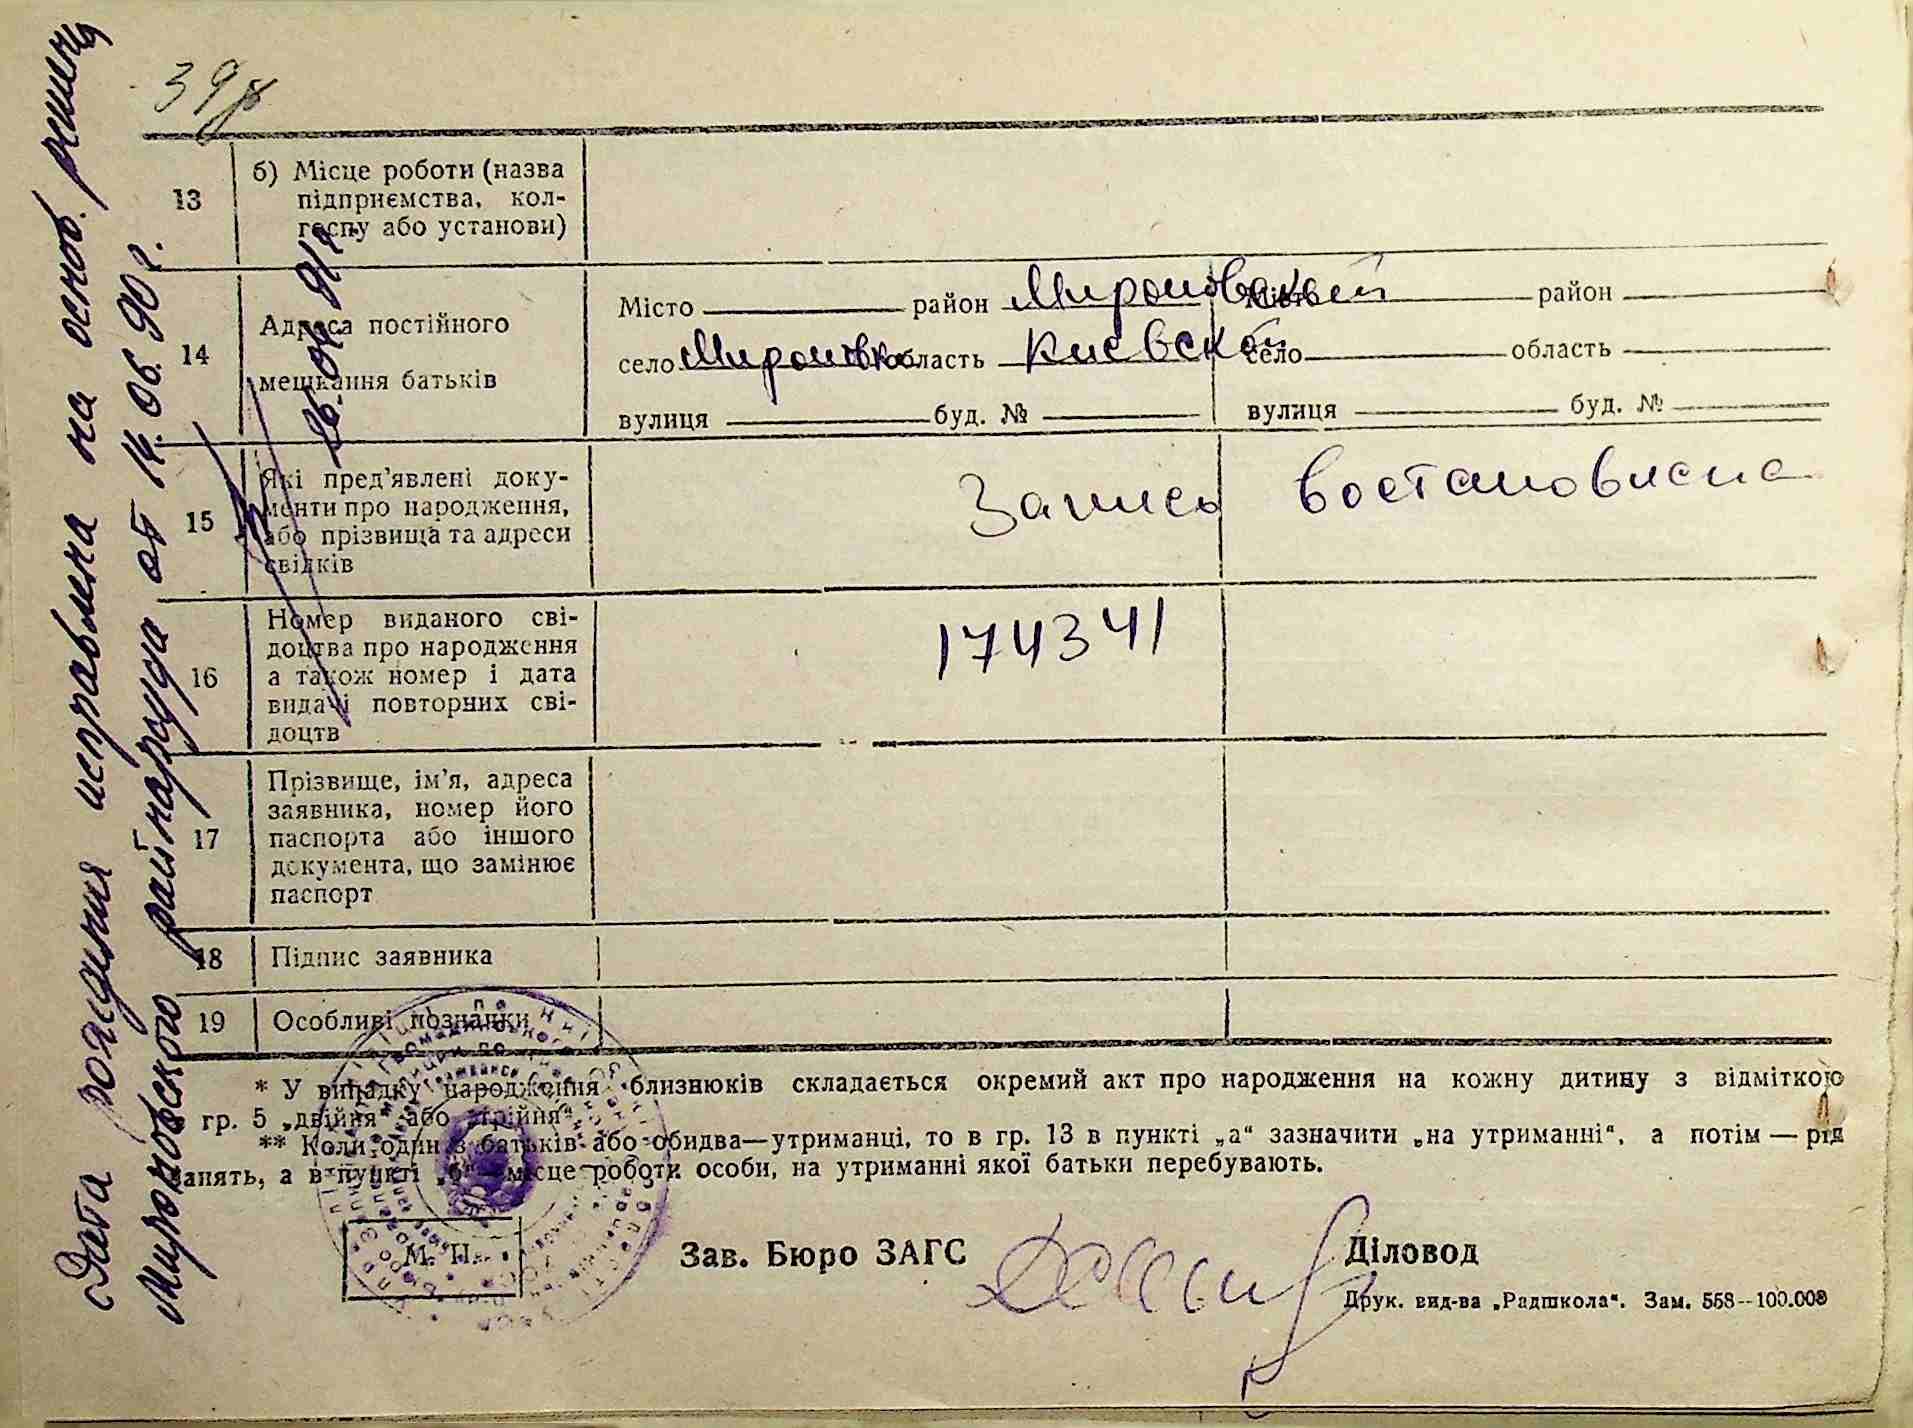 39
Дата рождения исправлена на основ. решения
Мироновского райнарсуда от 14.06.90 г.
13
б) Місце роботи (назва
підприємства, кол-
госпу або установи)
14
Адреса постійного
мешкання батьків
Місто район Мироновский Місто район
село Мироновка область Киевской село область
вулиця буд. № вулиця буд. №
15
Які пред'явлені доку-
менти про народження,
або прізвища та адреси
свідків
Запись востановлена
16
Номер виданого сві-
доцтва про народження
а також номер і дата
видачі повторних сві-
доцтв
174341
17
Прізвище, ім'я, адреса
заявника, номер його
паспорта або іншого
документа, що замінює
паспорт
18
Підпис заявника
19
Особливі познаки
* У випадку народження близнюків складається окремий акт про народження на кожну дитину з відміткою
гр. 5 „двійня“ або „трійня“
** Коли один з батьків або обидва—утриманці, то в гр. 13 в пункті „а“ зазначити „на утриманні“, а потім — рід
занять, а в пункті „б“ місце роботи особи, на утриманні якої батьки перебувають.
М. П.
Зав. Бюро ЗАГС
Діловод
Друк. вид-ва „Радшкола“. Зам. 558--100.000